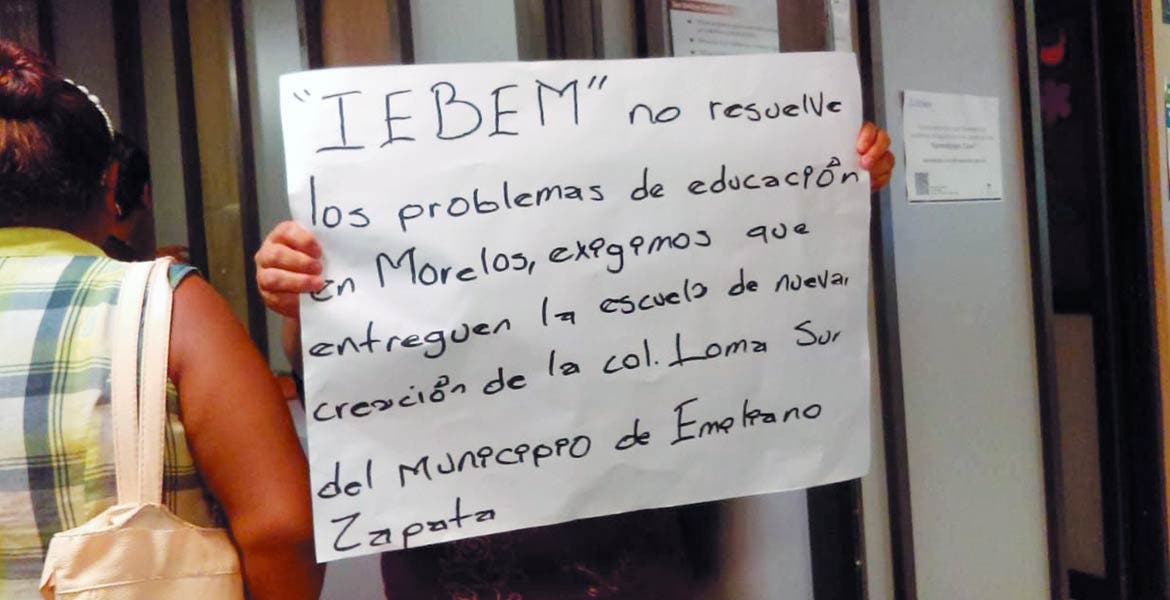 "IEBEM" no resuelve
los problemas de educación
en Morelos, exigimos que
entreguen la escuela de nueva
creación de la col. Loma Sur
del Municipio de Emiliano
Zapata